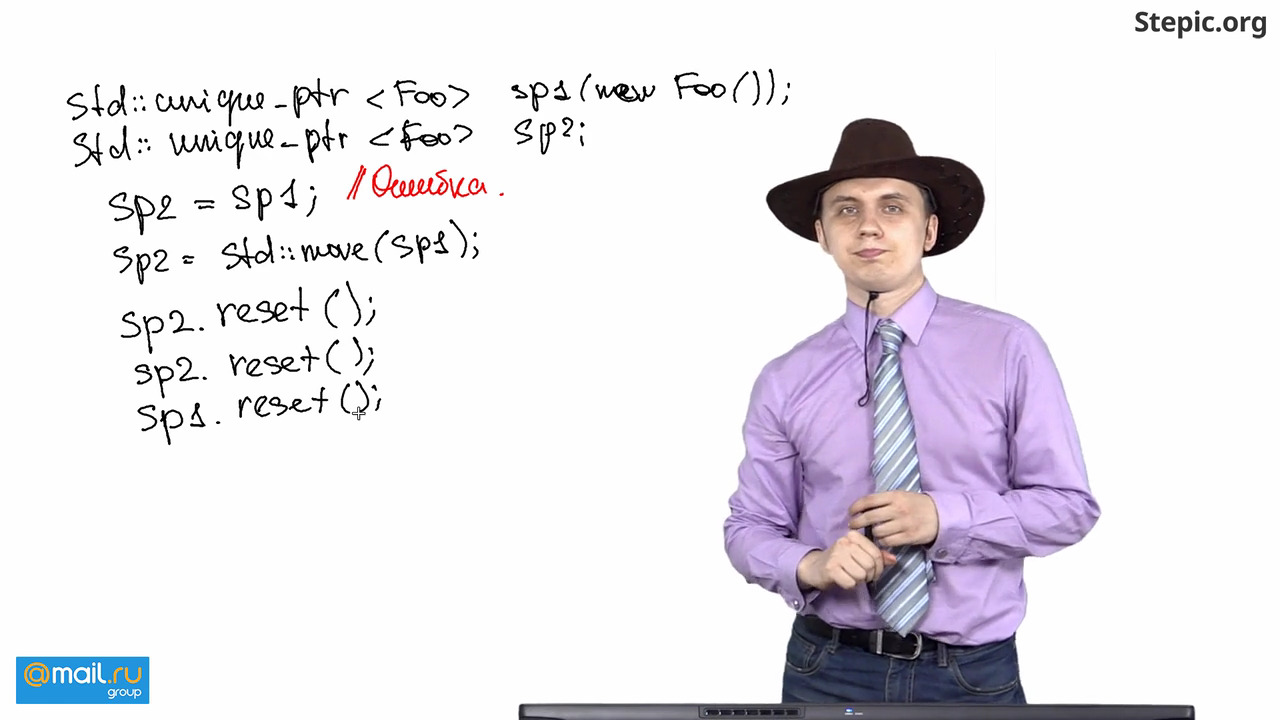 Stepic.org
std::unique_ptr <Foo> sp1(new Foo());
std::unique_ptr <Foo> sp2;
sp2 = sp1; //Ошибка.
sp2 = std::move(sp1);
sp2. reset ();
sp2. reset();
sp1. reset();
@mail.ru
group